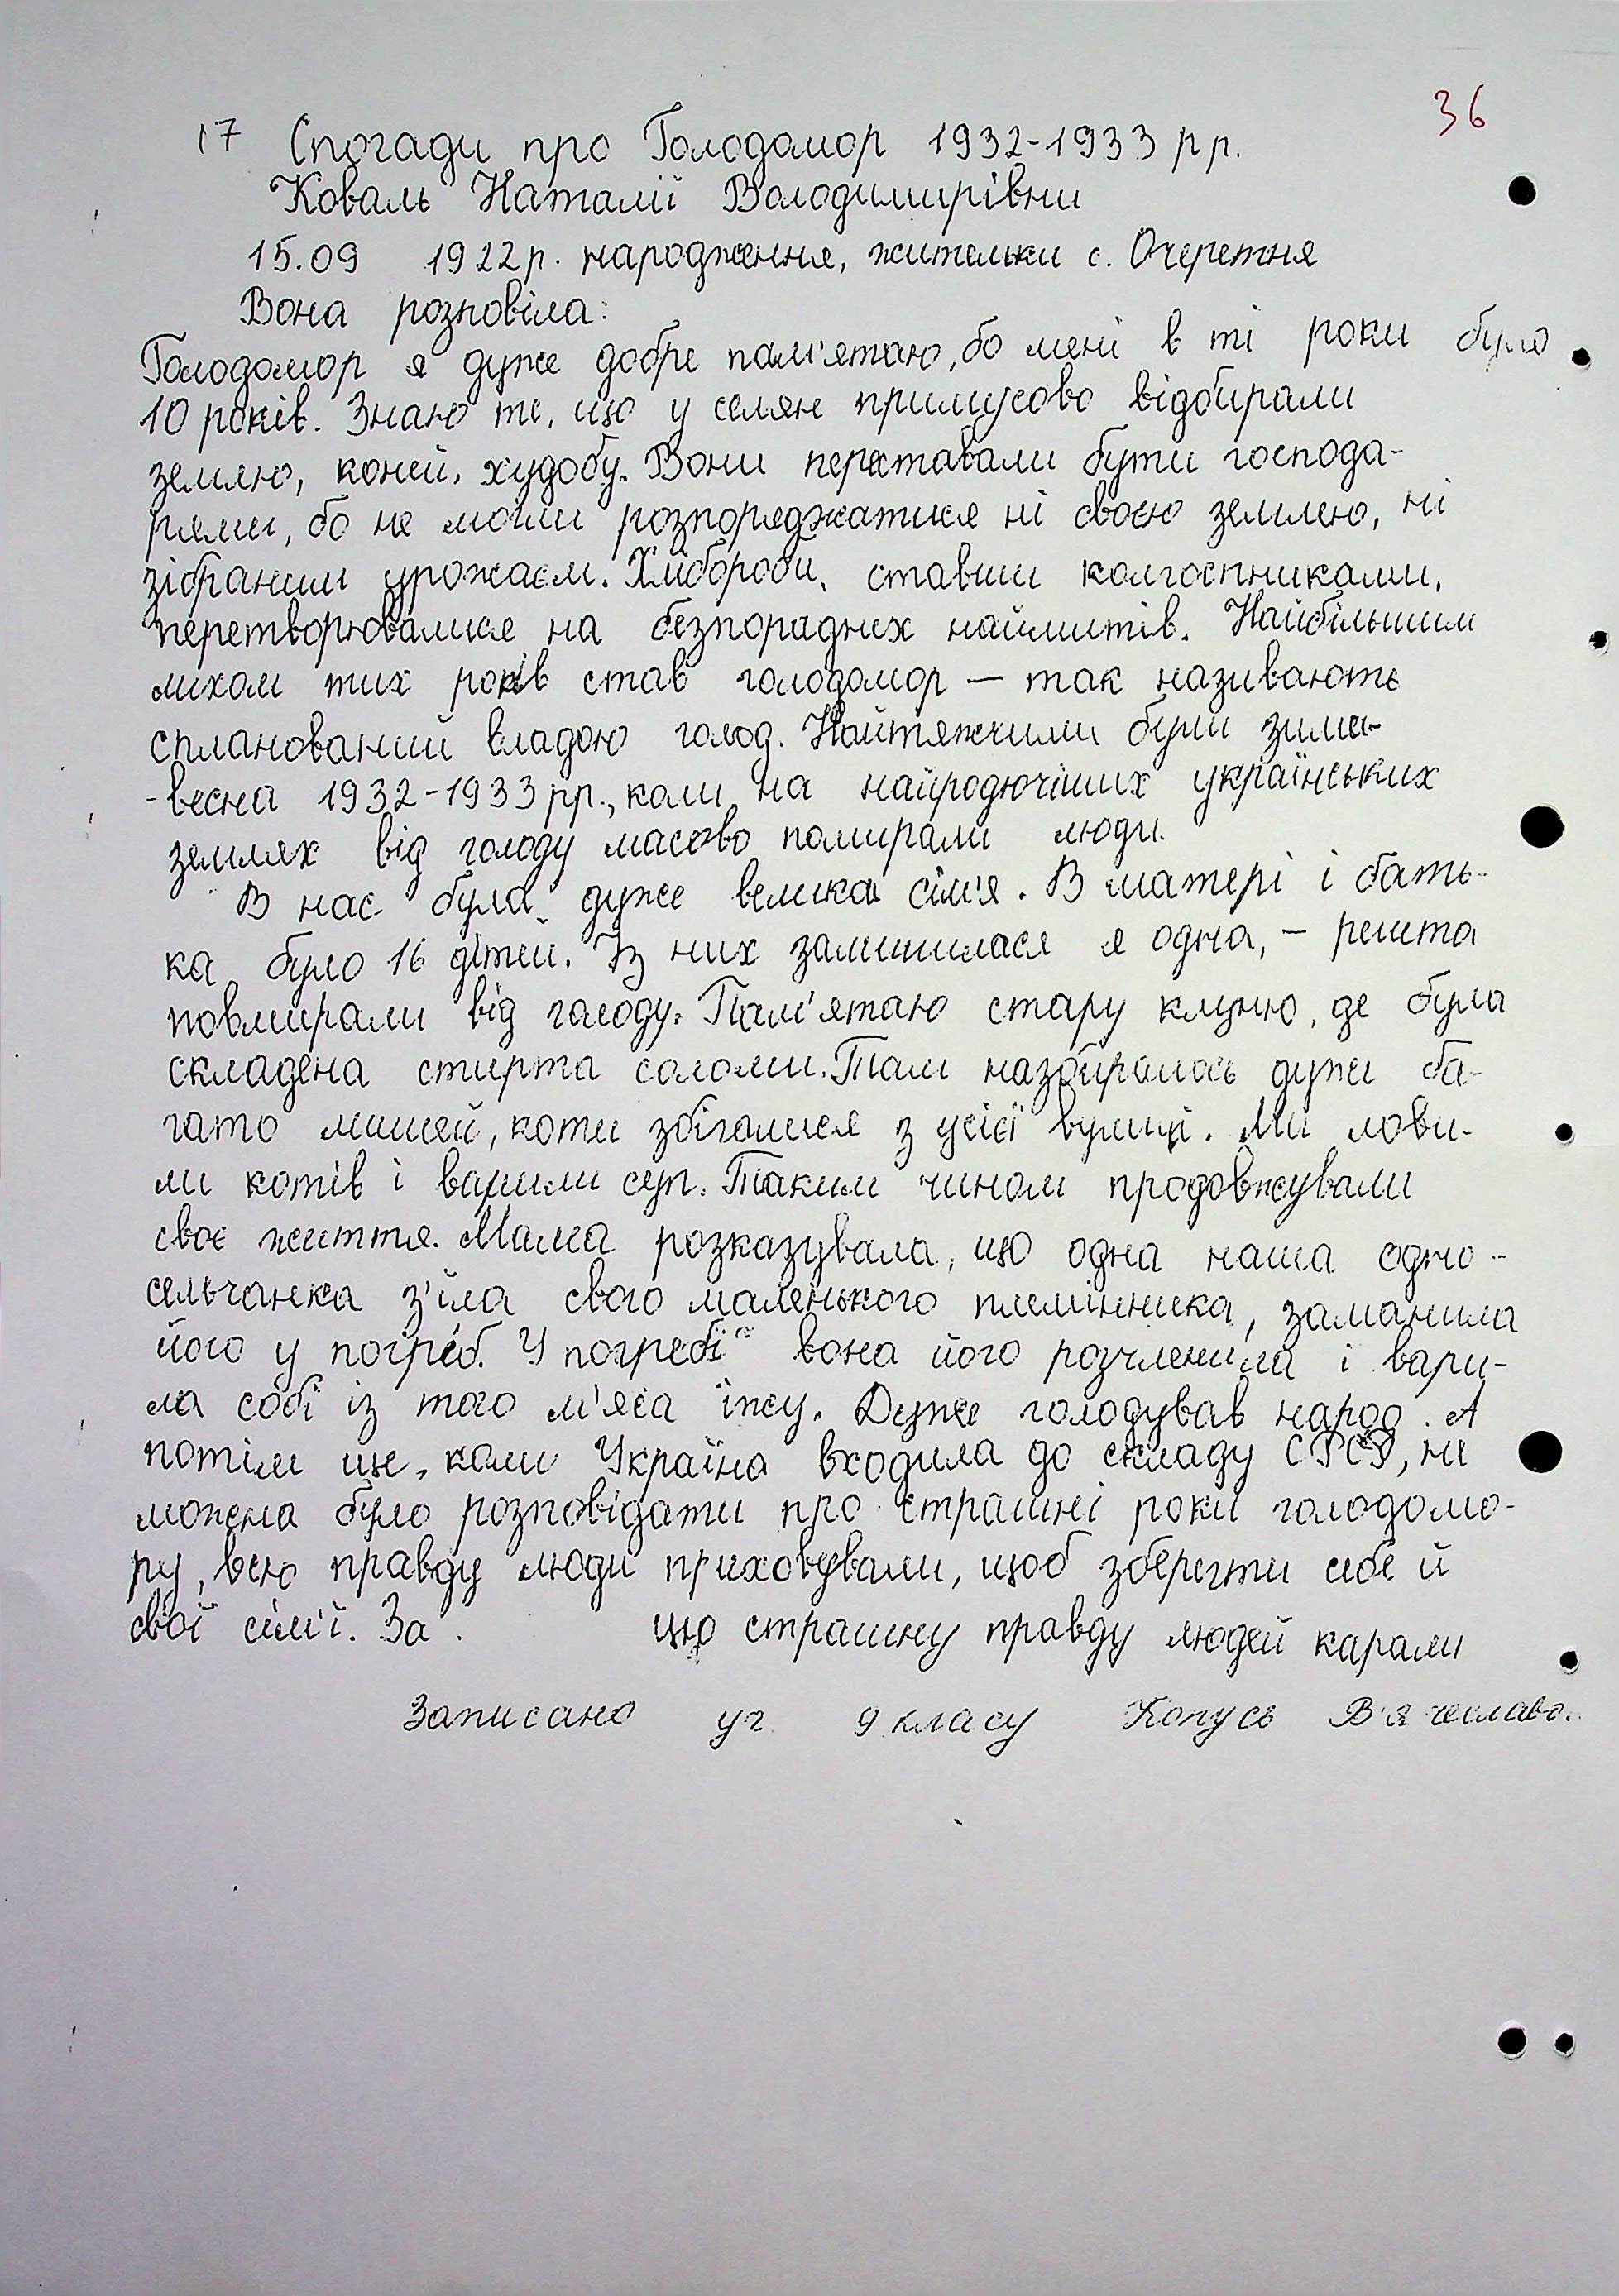 36
17 Спогади про Голодомор 1932-1933 рр.
Коваль Наталії Володимирівни
15.09 1922р. народження, жительки с. Очеретня
Вона розповіла:
Голодомор я дуже добре пам'ятаю, бо мені в ті роки було
10 років. Знаю те, що у селян примусово відбирали
землю, коней, худобу. Вони переставали бути господа-
рями, бо не могли розпоряджатися ні своєю землею, ні
зібраним урожаєм. Хлібороби, ставши колгоспниками,
перетворювалися на безпорадних наймитів. Найбільшим
лихом тих років став голодомор — так називають
спланований владою голод. Найтяжчими були зима-
-весна 1932-1933рр., коли на найродючіших українських
землях від голоду масово помирали люди.
В нас була дуже велика сім'я. В матері і бать-
ка було 16 дітей. Із них залишилася я одна, - решта
повмирали від голоду. Пам'ятаю стару клуню, де була
складена стирта соломи. Там назбиралось дуже ба-
гато мишей, коти збігалися з усієї вулиці. Ми лови-
ли котів і варили суп. Таким чином продовжували
своє життя. Мама розказувала, що одна наша одно-
сельчанка з'їла свого маленького племінника, заманила
його у погреб. У погребі вона його розчленила і вари-
ла собі із того м'яса їжу. Дуже голодував народ. А
потім ще, коли Україна входила до складу СРСР, не
можна було розповідати про страшні роки голодомо-
ру, всю правду люди приховували, щоб зберегти себе й
свої сім'ї. За цю страшну правду людей карали
Записано уч. 9 класу Копусь В'ячеславо..